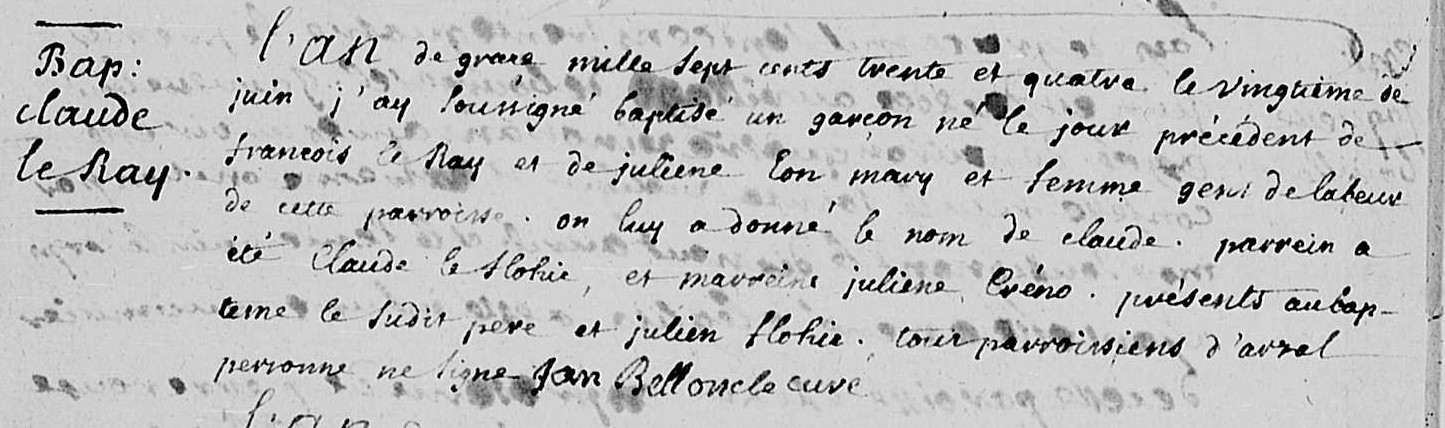 Bap:
claude
le Ray.
l'an de grace mille sept cents trente et quatre le vingtieme de
juin j'ay soussigné baptisé un garçon né le jour précédent de
francois le Ray et de juliene Eon mary et femme gens de labeur
de cette parroisse. on luy a donné le nom de claude. parrein a
été Claude le flohic, et marreine juliene Créno. présents au bap-
teme le sudit pere et julien flohic. tous parroissiens d'arzal
personne ne signe Jan Belloncle curé
l'an